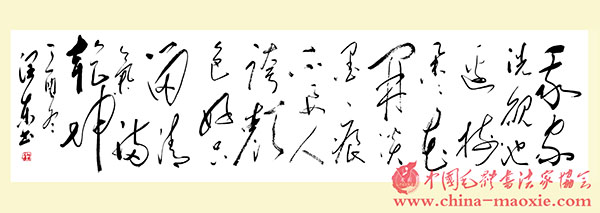 我家
洗砚池
边树
朵朵花
开淡
墨痕
不要人
誇颜
色好只
留清
氣满
乾坤
丁酉冬
东书
中国毛体书法家协会
www.china-maoxie.com